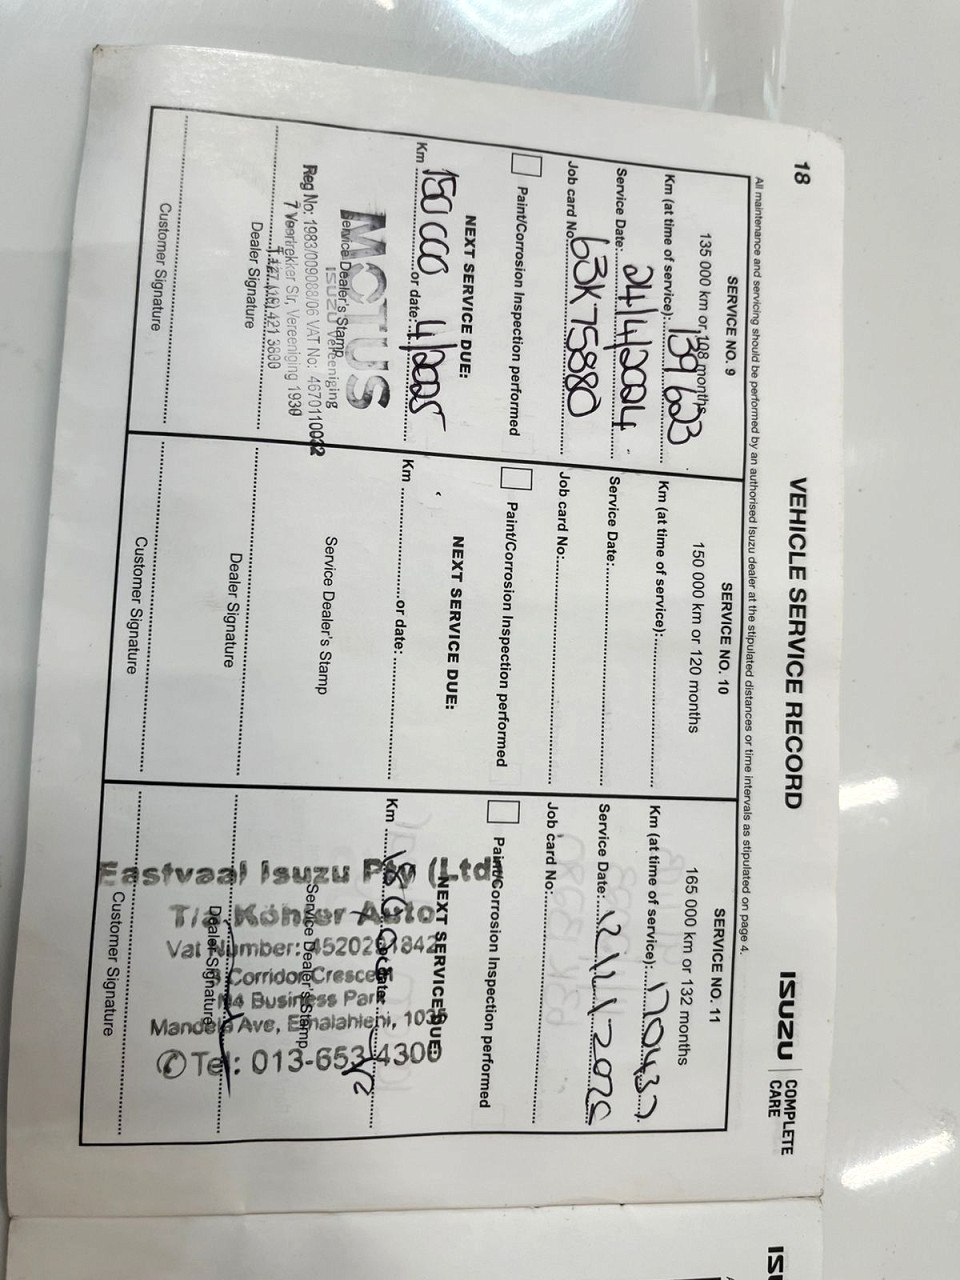 18
VEHICLE SERVICE RECORD
ISUZU
COMPLETE
CARE
All maintenance and servicing should be performed by an authorised Isuzu dealer at the stipulated distances or time intervals as stipulated on page 4.
SERVICE NO. 9
135 000 km or 108 months
Km (at time of service): 139 623
Service Date: 24/4/2024
Job card No: 63K75880
Paint/Corrosion Inspection performed
NEXT SERVICE DUE:
Km 150 000 or date: 4/2025
MOTUS
ISUZU Vereeniging
Service Dealer's Stamp
Reg No: 1983/009088/06 VAT No: 4670110
7 Voortrekker Str, Vereeniging 1930
Dealer Signature
Customer Signature
SERVICE NO. 10
150 000 km or 120 months
Km (at time of service):
Service Date:
Job card No:
Paint/Corrosion Inspection performed
NEXT SERVICE DUE:
Km or date:
Service Dealer's Stamp
Dealer Signature
Customer Signature
SERVICE NO. 11
165 000 km or 132 months
Km (at time of service):
Service Date:
Job card No:
Paint/Corrosion Inspection performed
NEXT SERVICE DUE
Km
Service Dealer's Stamp
Dealer Signature
Customer Signature
Eastvaal Isuzu Pty (Ltd
T/a Kohler Auto
Vat Number:
Corridor Crescent
N4 Business Park
Mandela Ave, Emalahleni,
Tel: 013-653 4300